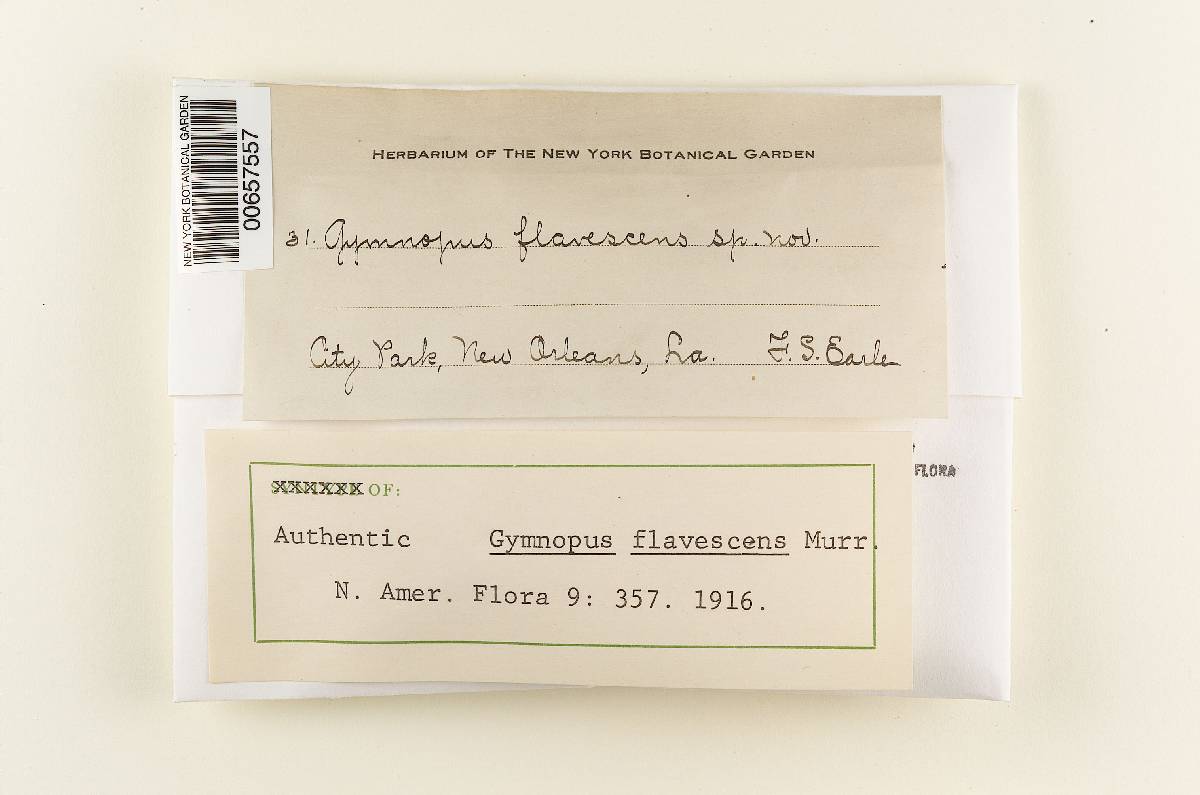 NEW YORK BOTANICAL GARDEN
00657557
HERBARIUM OF THE NEW YORK BOTANICAL GARDEN
31. Gymnopus flavescens sp. nov.
City Park, New Orleans, La. F. S. Earle
FLORA
XXXXXX OF:
Authentic Gymnopus flavescens Murr.
N. Amer. Flora 9: 357. 1916.